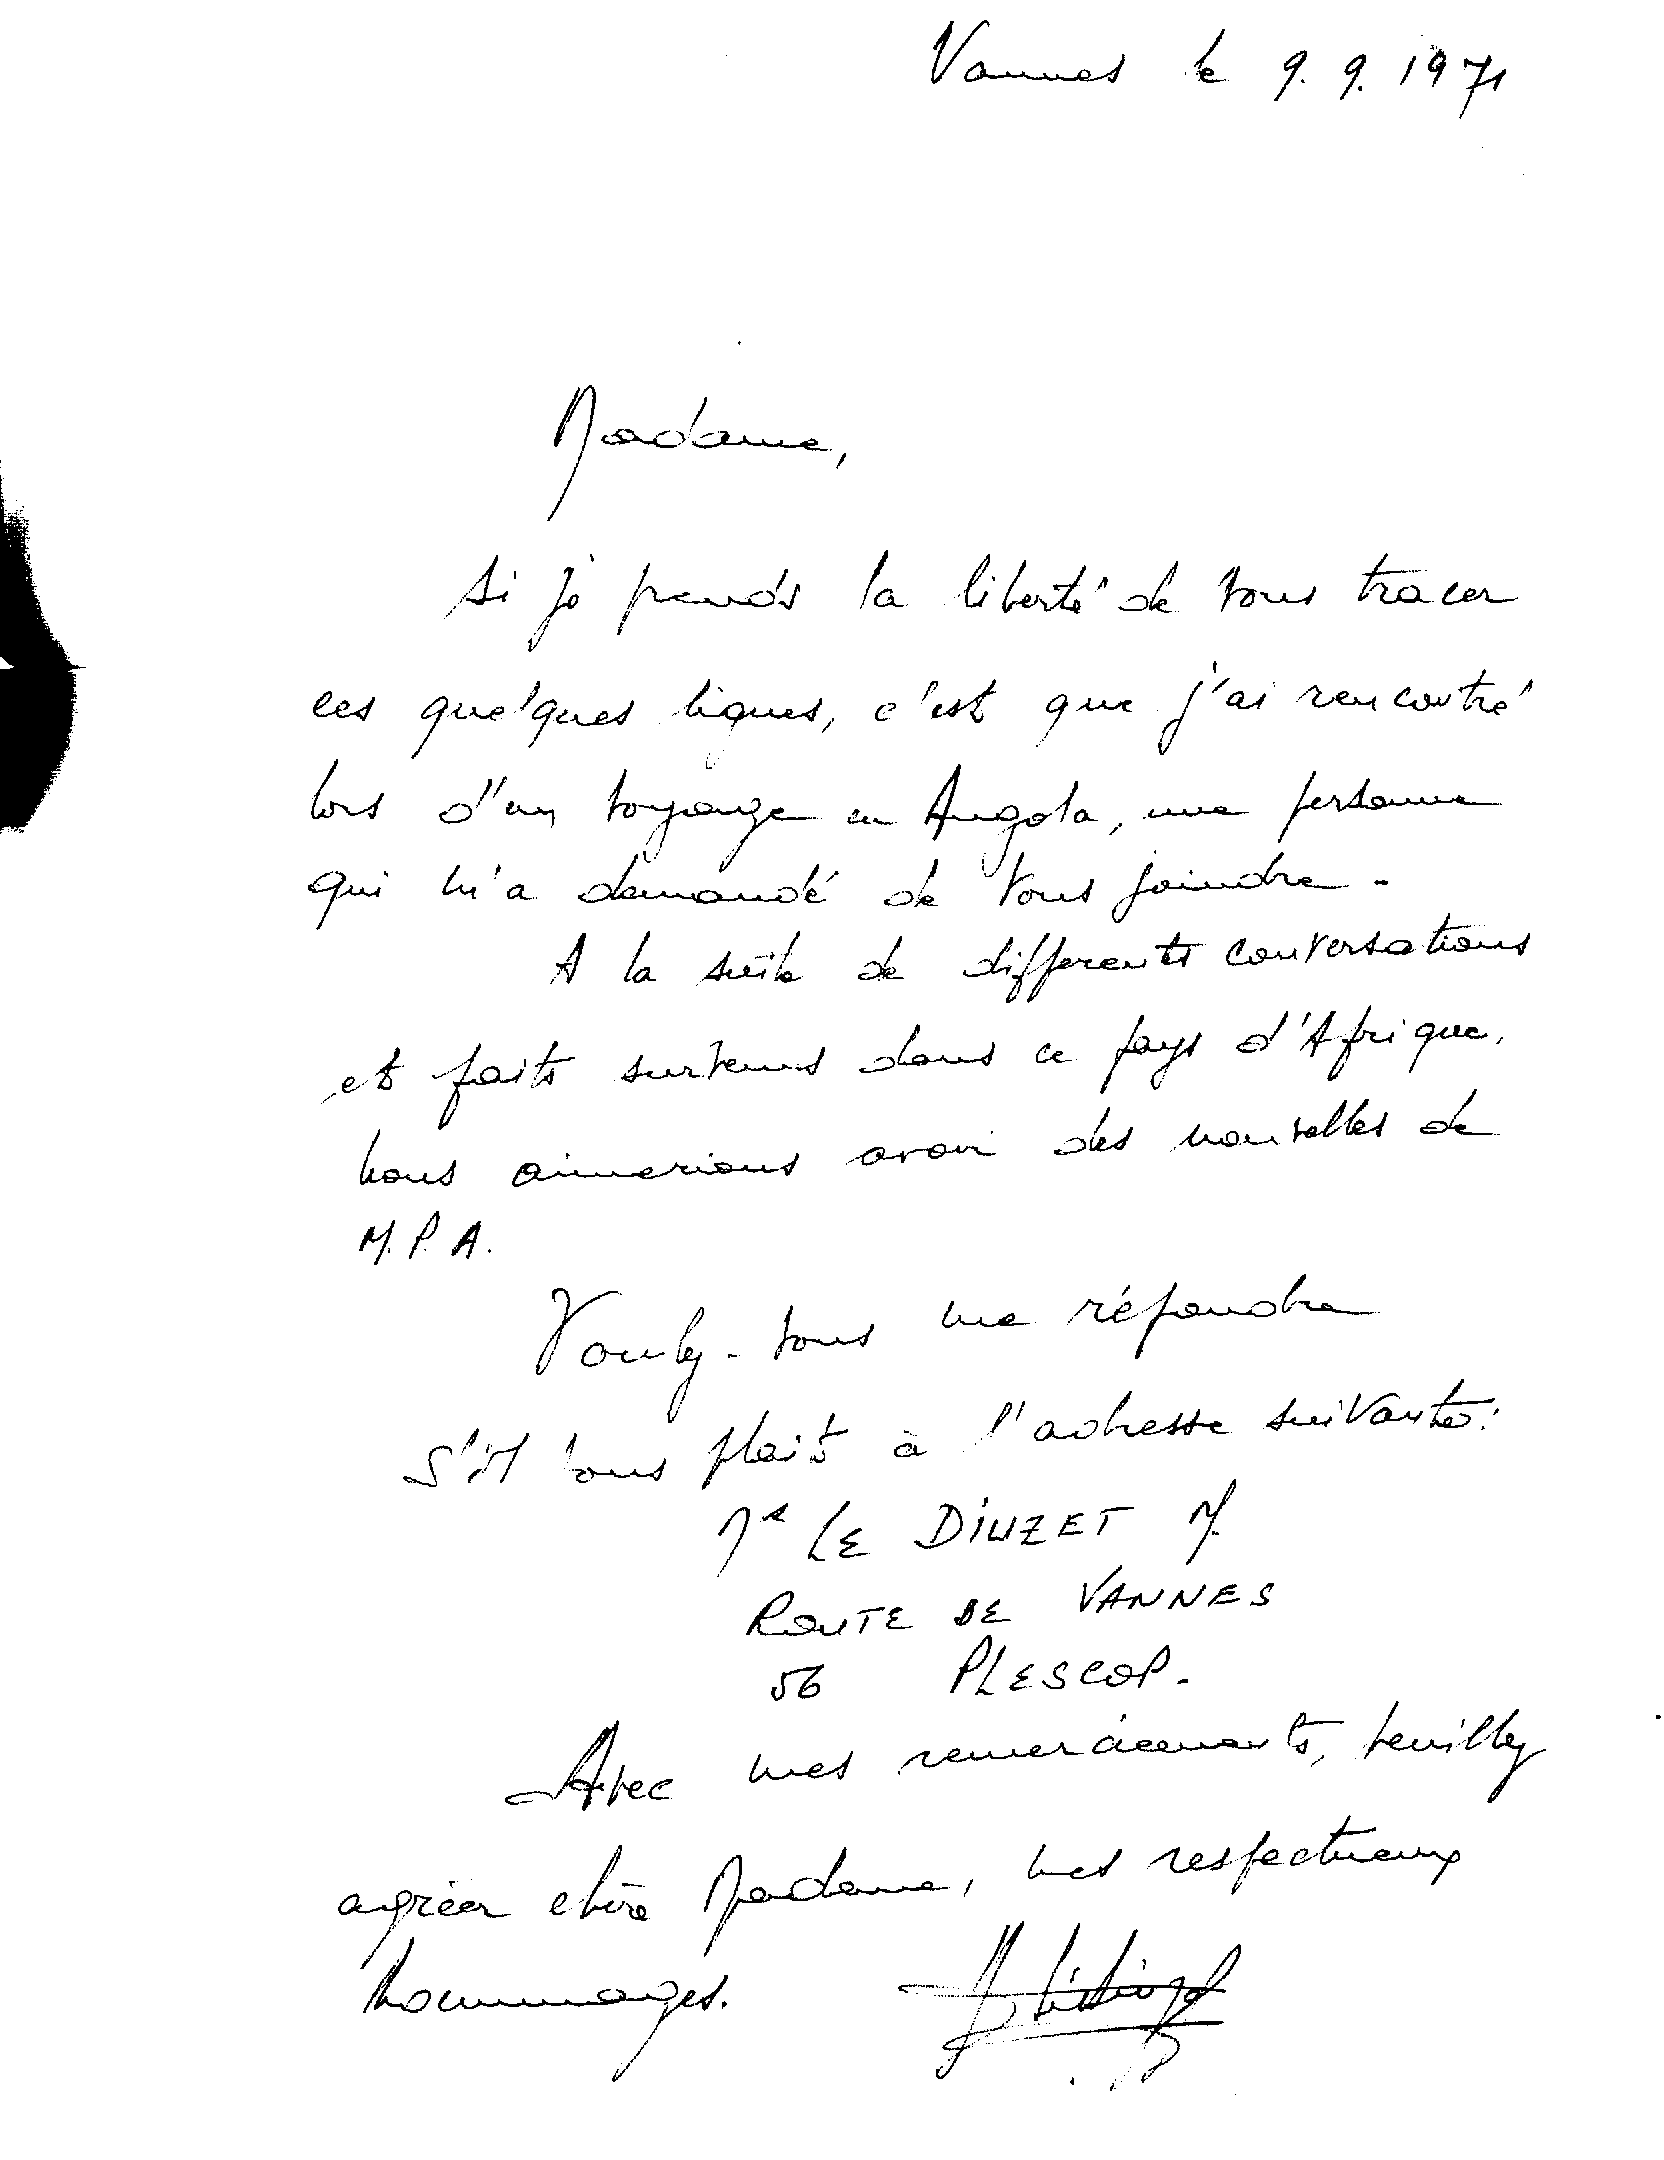 Vannes le 9.9.1971
Madame,
Si je prends la liberté de vous tracer
ces quelques lignes, c'est que j'ai rencontré
lors d'un voyage en Angola, une personne
qui m'a demandé de vous joindre.
A la suite de differents conversations
et faits survenus dans ce pays d'Afrique,
nous aimerions avoir des nouvelles de
M.P.A.
Voulez-vous me répondre
S'il vous plait à l'adresse suivante:
Mr LE DIUZET M.
ROUTE DE VANNES
56 PLESCOP.
Avec mes remerciements, veuillez
agréer chère Madame, mes respectueux
hommages.